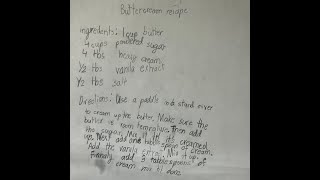 Buttercream recipe
ingredients: 1 cup butter
4 cups powdered sugar
4 tbs heavy cream
1/2 tbs vanila extract
1/2 tbs salt
Directions: Use a paddle in a stand mixer
to cream up the butter. Make sure the
butter is room then add
the sugar. Mix it till its creamed
up. Next add one tablespoon of cream.
Add the vanila extract. Mix it up.
Finally, add 3 tablespoons of
cream. mix til done